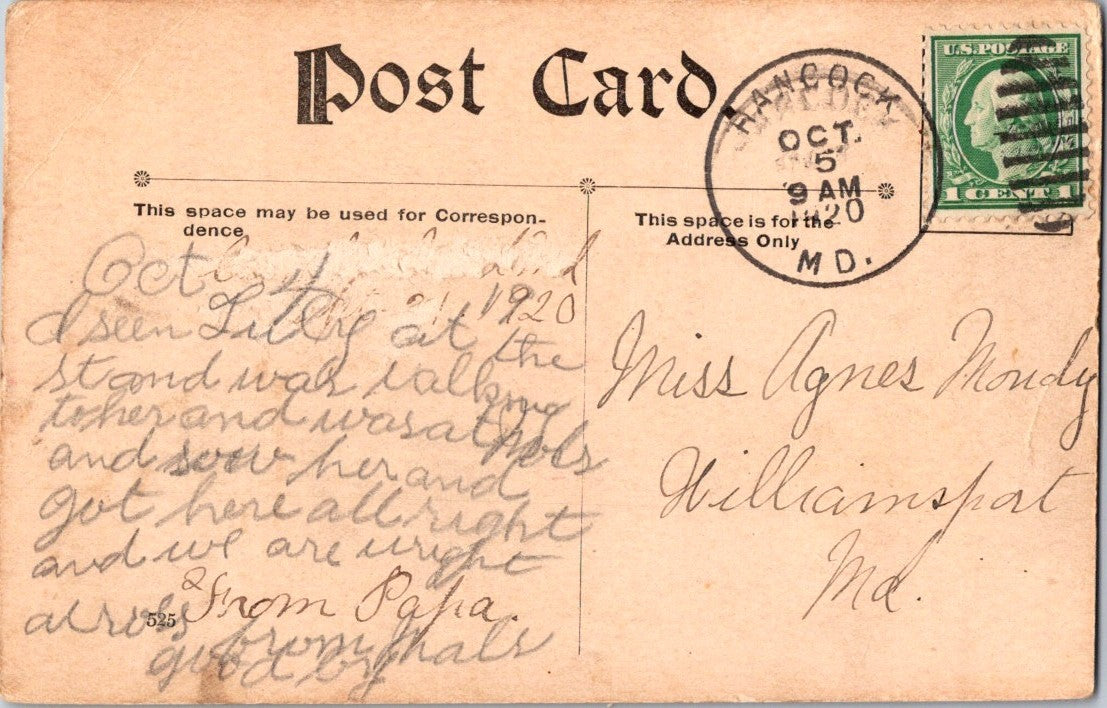 Post Card.
HANCOCK
OCT.
5
9 AM
1920
MD.
U.S. POSTAGE
1 CENT 1
This space may be used for Correspon-
dence
This space is for the
Address Only
Oct 4
1920
I seen at the
stand was talking
to her and was at
and sow her and
got here all right
and we are wright
across
& From Papa.
525
from hals
good by
Miss Agnes Moudy
Williamsport
Md.